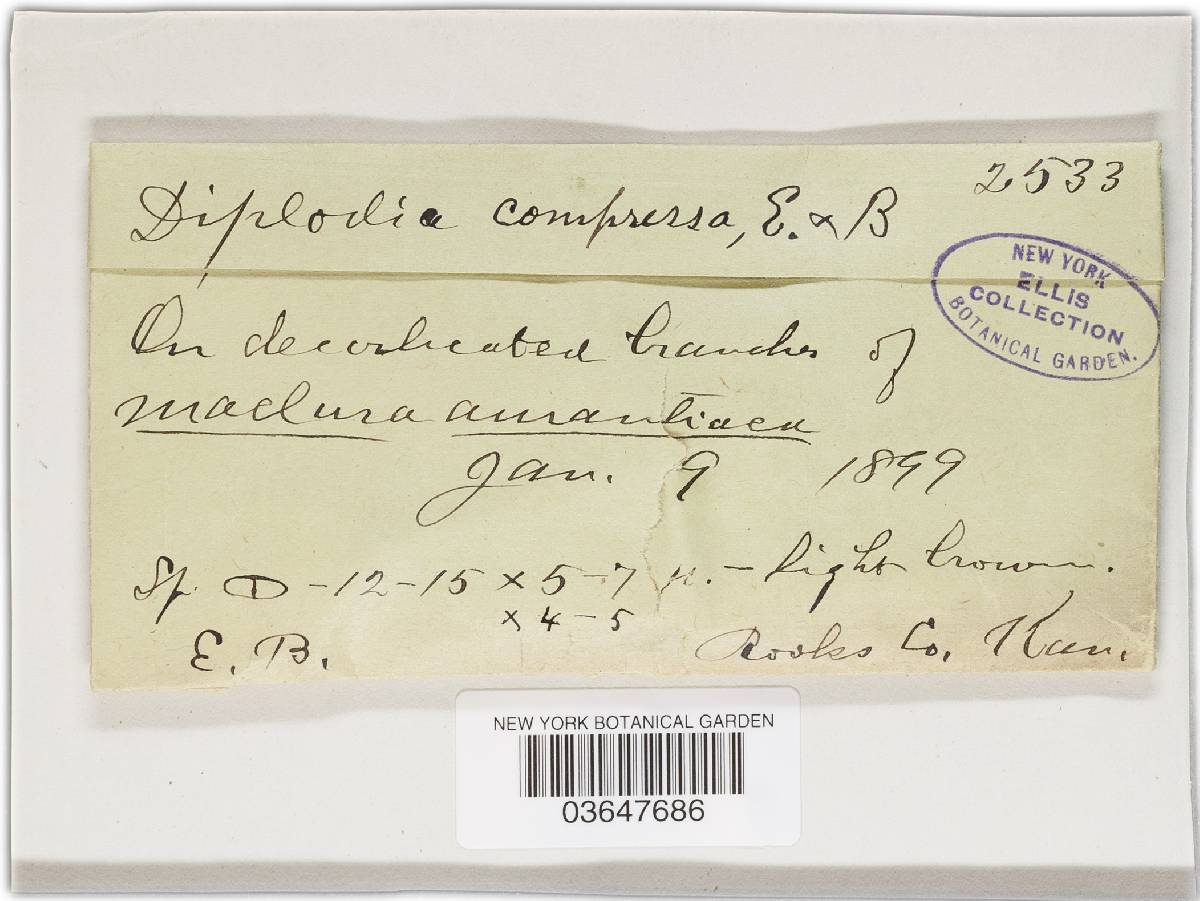 2533
Diplodia compressa, E. & B
NEW YORK
ELLIS
COLLECTION
BOTANICAL GARDEN.
On decorticated branches of
maclura aurantiaca
Jan. 9 1899
Sp. - 12-15 x 5-7 µ. - light brown.
x 4-5
E. B. Rooks Co, Kan.
NEW YORK BOTANICAL GARDEN
03647686